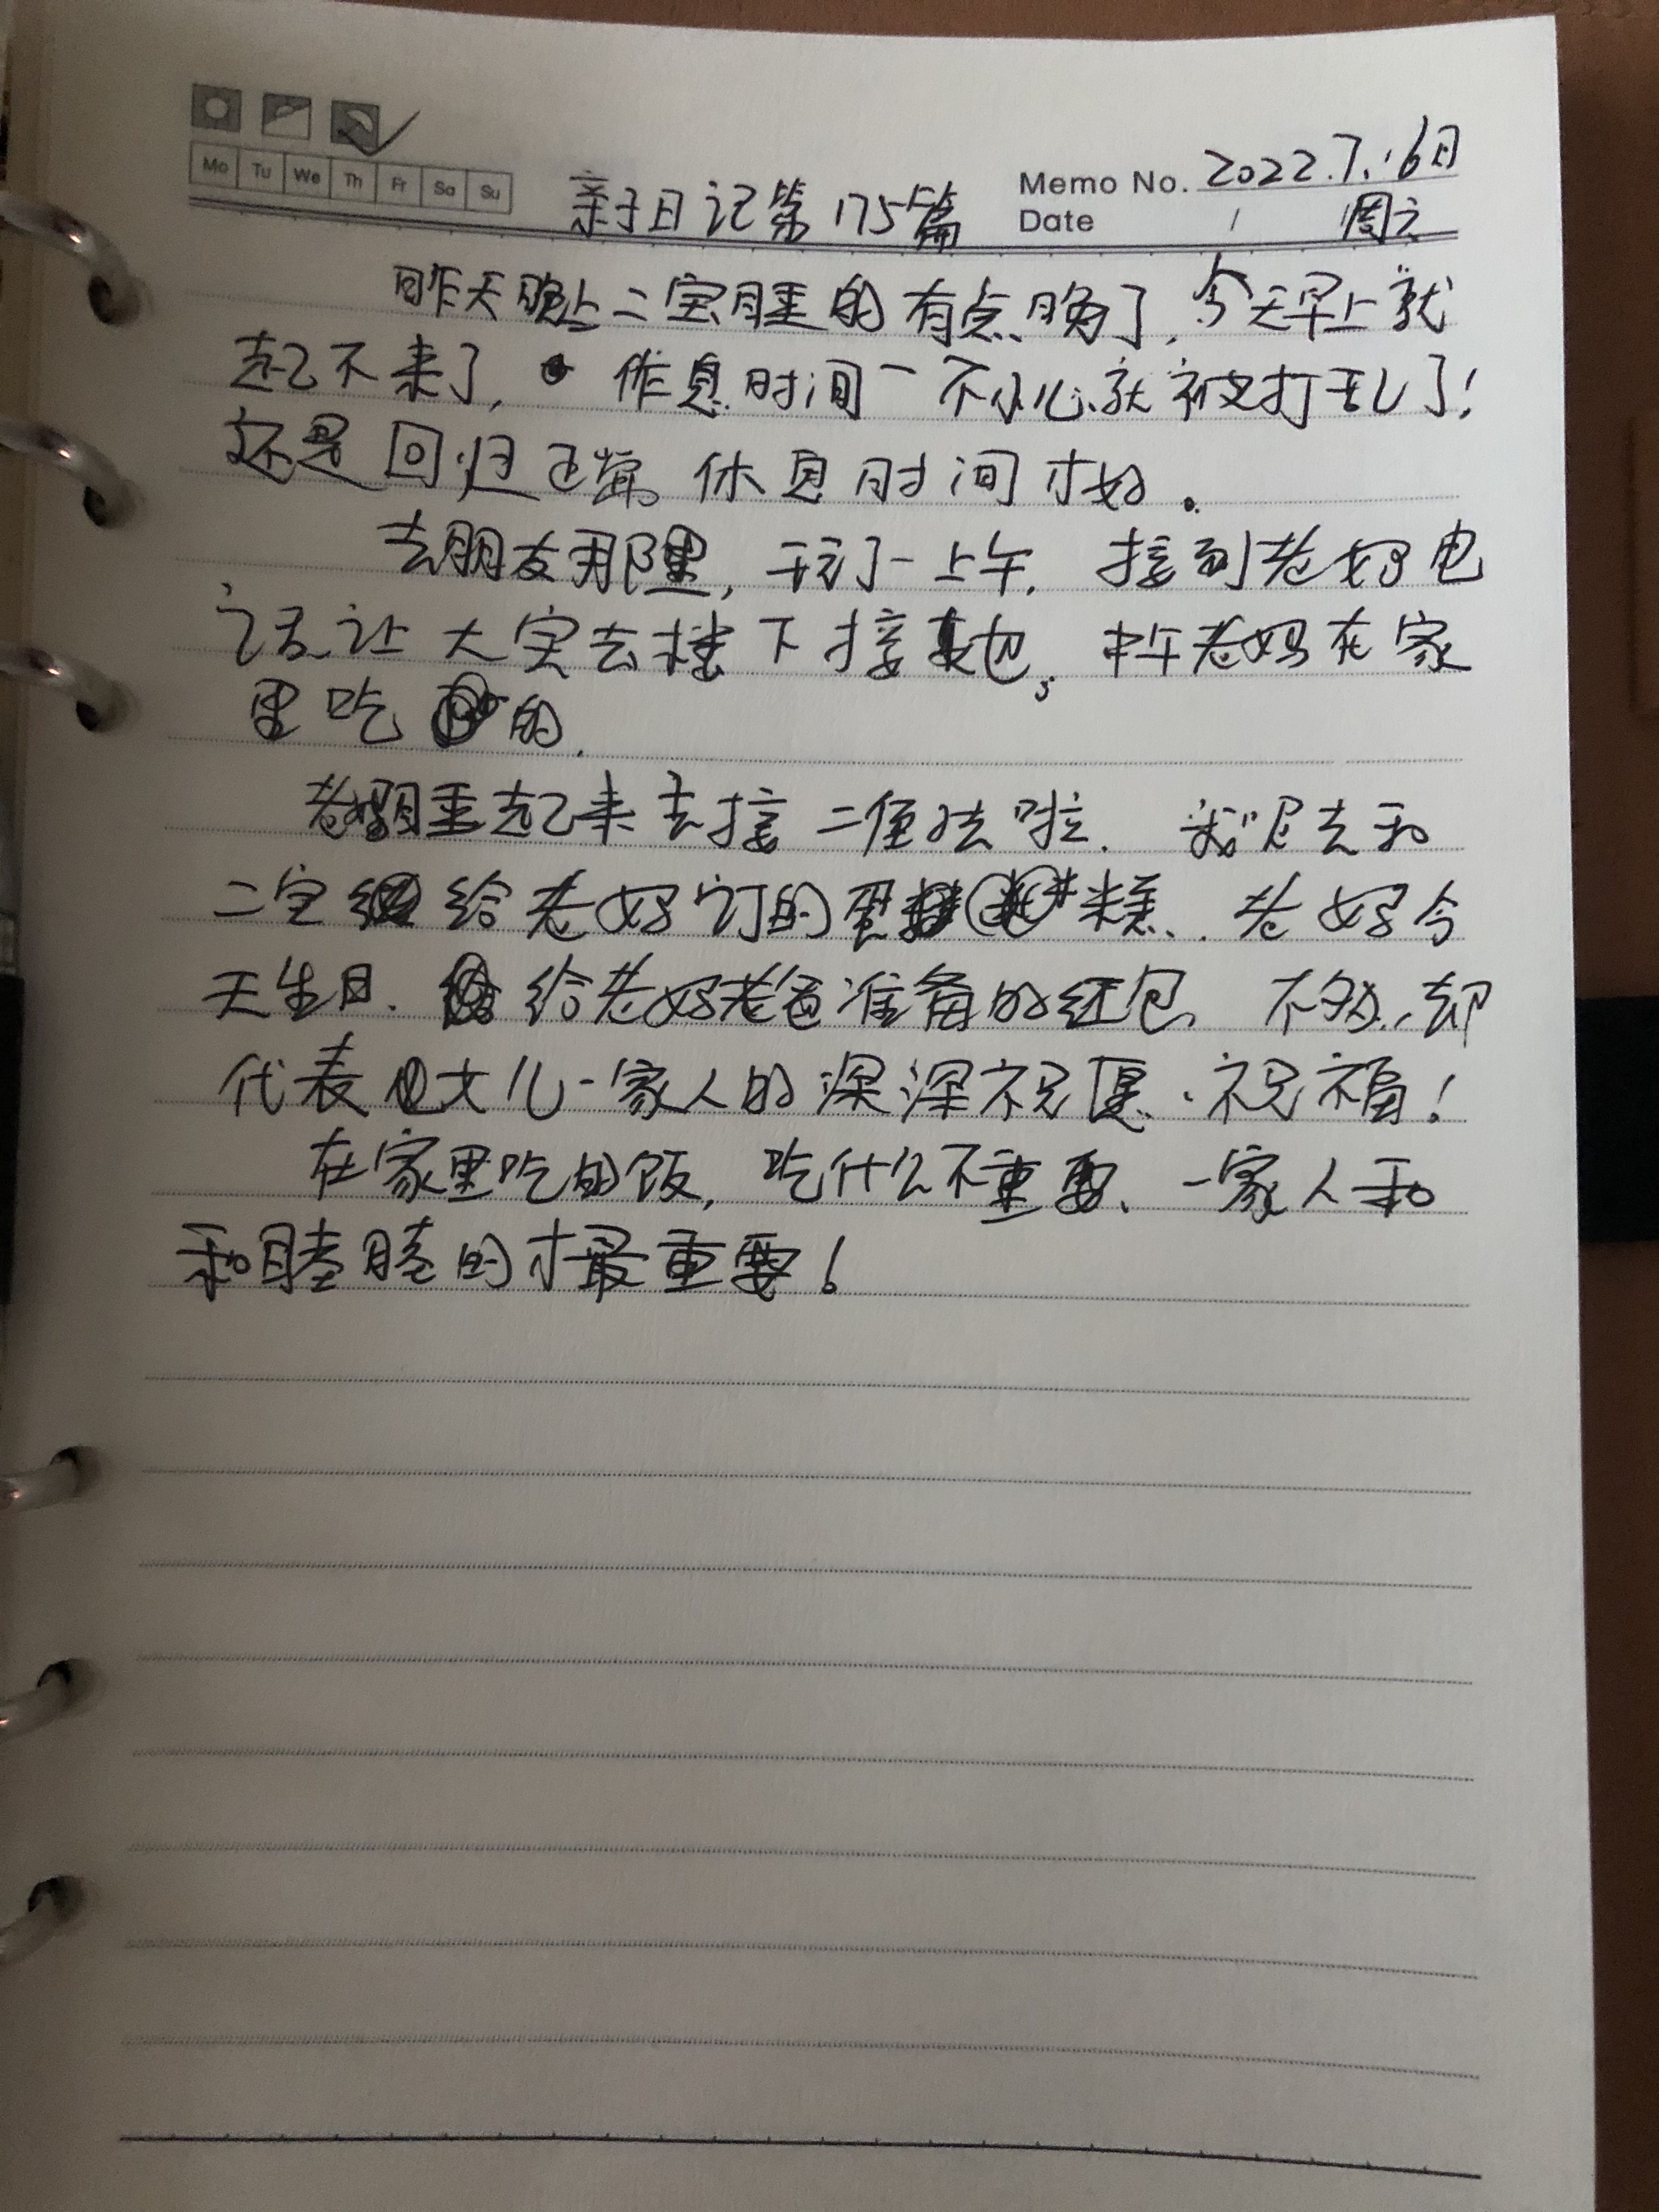 Mo Tu We Th Fr Sa Su
亲子日记第175篇
Memo No. 2022.7.16日
Date / / 周六
昨天晚上二宝睡的有点晚了,今天早上就
起不来了, 作息时间一不小心就被打乱了!
还是回归正常休息时间才好。
去朋友那里,玩了一上午,接到老妈电
话让大宝去楼下接她,中午老妈在家
里吃的.
老妈睡起来去接二便去啦.我呢去和
二宝给老妈订的蛋糕、老妈今
天生日.给老妈老爸准备的红包,不多,却
代表女儿一家人的深深祝愿、祝福!
在家里吃的饭,吃什么不重要、一家人和
和睦睦的才最重要!